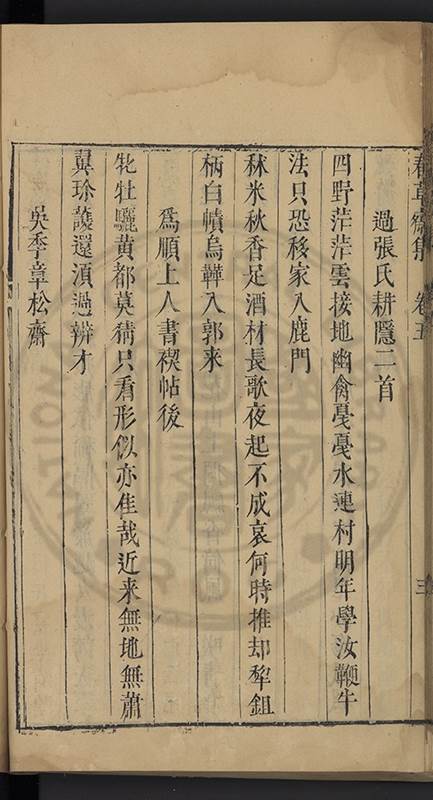 春草齋集 卷五 三
過張氏耕隱二首
四野茫茫雲接地幽禽戞戞水連村明年學汝鞭牛
法只恐移家入鹿門
秫米秋香足酒材長歌夜起不成哀何時推却犂鉏
柄白幘烏鞾入郭来
為順上人書禊帖後
牝牡驪黃都莫猜只看形似亦佳哉近来無地無蕭
翼珍䕶還須過辨才
吳季章松齋